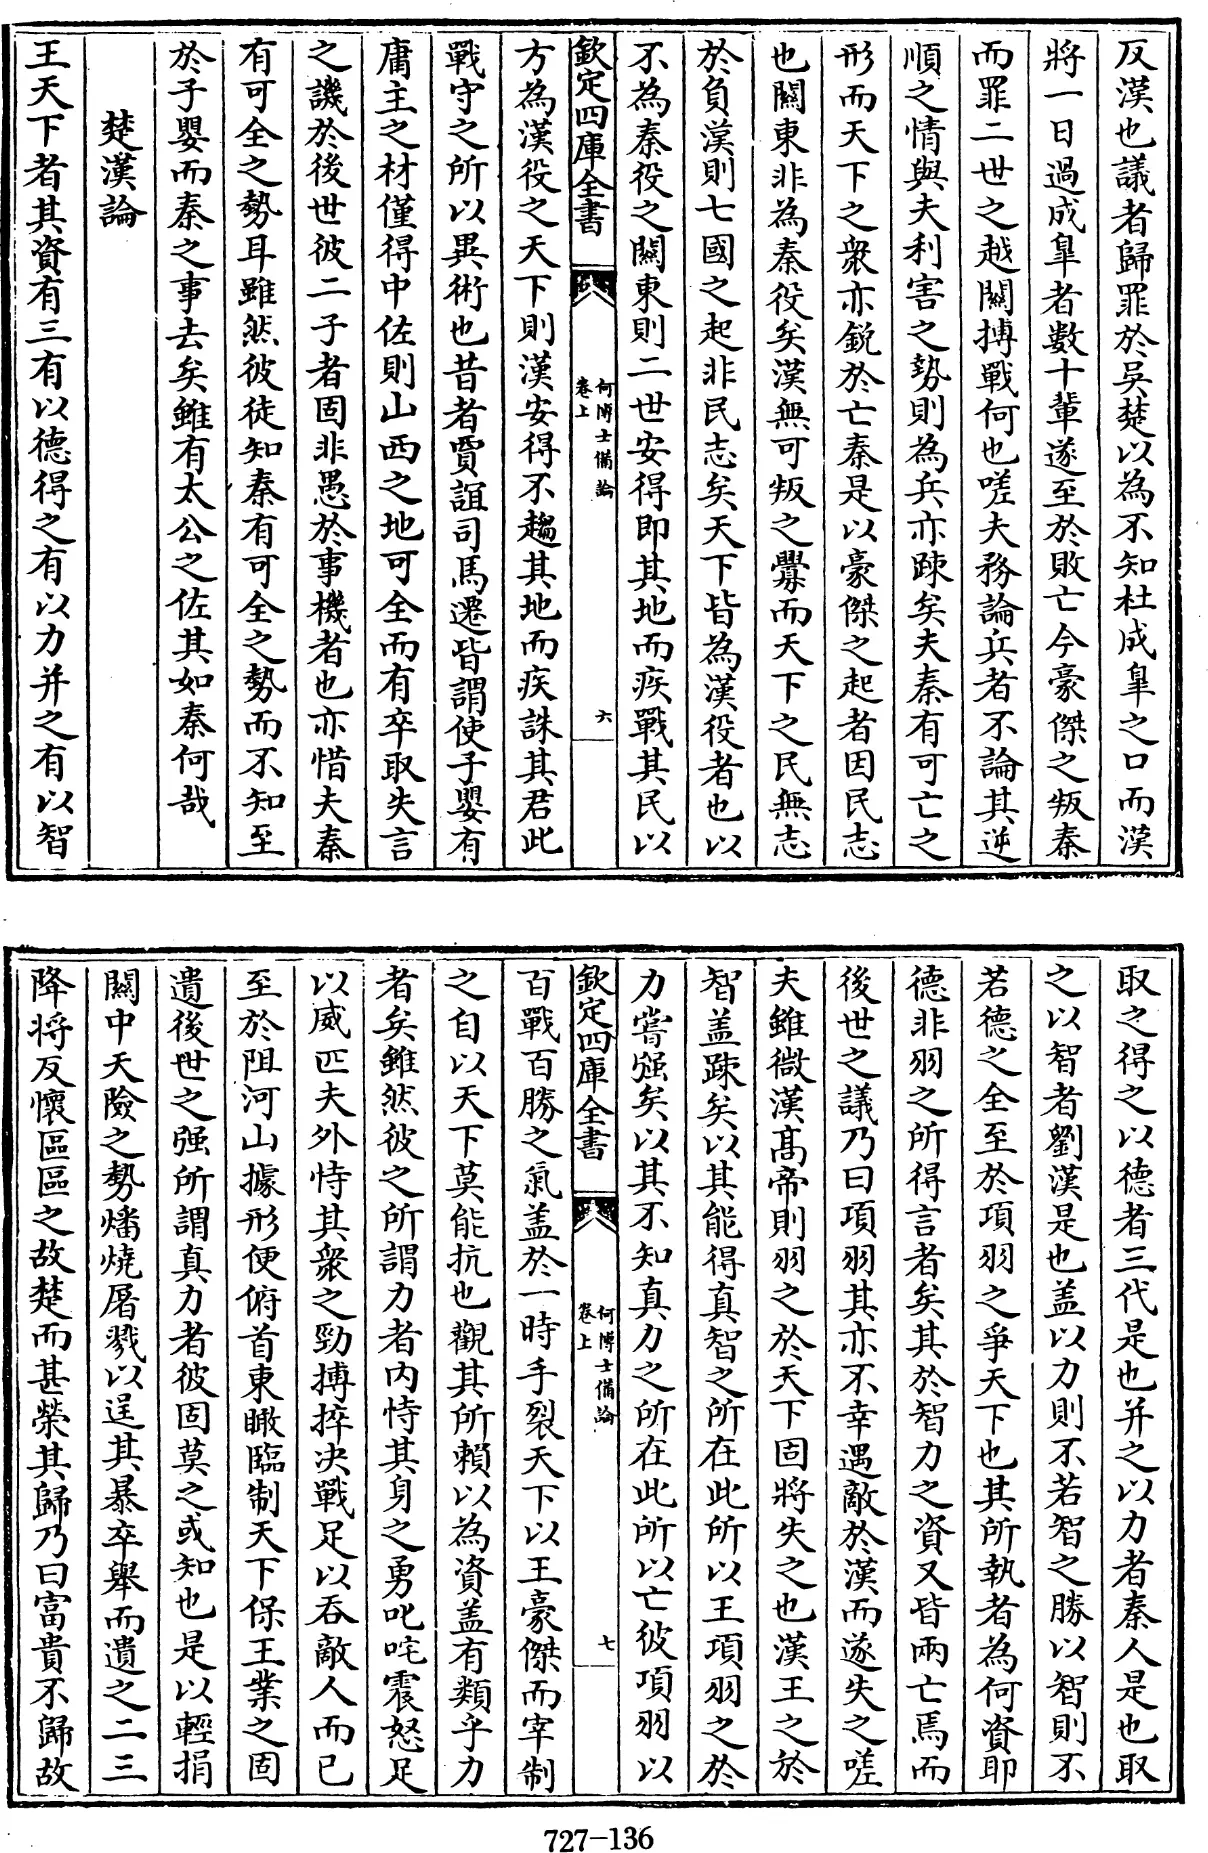 反漢也議者歸罪於吳楚以為不知杜成臯之口而漢
將一日過成臯者數十輩遂至於敗亡今豪傑之叛秦
而罪二世之越關搏戰何也嗟夫務論兵者不論其逆
順之情與夫利害之勢則為兵亦踈矣夫秦有可亡之
形而天下之衆亦銳於亡秦是以豪傑之起者因民志
也關東非為秦役矣漢無可叛之釁而天下之民無志
於負漢則七國之起非民志矣天下皆為漢役者也以
不為秦役之關東則二世安得即其地而疾戰其民以
欽定四庫全書
何博士備論
卷上
六
方為漢役之天下則漢安得不趨其地而疾誅其君此
戰守之所以異術也昔者賈誼司馬遷皆謂使子嬰有
庸主之材僅得中佐則山西之地可全而有卒取失言
之譏於後世彼二子者固非愚於事機者也亦惜夫秦
有可全之勢耳雖然彼徒知秦有可全之勢而不知至
於子嬰而秦之事去矣雖有太公之佐其如秦何哉
楚漢論
王天下者其資有三有以德得之有以力并之有以智
取之得之以德者三代是也并之以力者秦人是也取
之以智者劉漢是也盖以力則不若智之勝以智則不
若德之全至於項羽之爭天下也其所執者為何資耶
德非羽之所得言者矣其於智力之資又皆兩亡焉而
後世之議乃曰項羽其亦不幸遇敵於漢而遂失之嗟
夫雖微漢高帝則羽之於天下固將失之也漢王之於
智盖踈矣以其能得真智之所在此所以王項羽之於
力嘗强矣以其不知真力之所在此所以亡彼項羽以
欽定四庫全書
何博士備論
卷上
七
百戰百勝之氣盖於一時手裂天下以王豪傑而宰制
之自以天下莫能抗也觀其所賴以為資盖有類乎力
者矣雖然彼之所謂力者内恃其身之勇叱咤震怒足
以威匹夫外恃其衆之勁搏捽决戰足以吞敵人而已
至於阻河山據形便俯首東瞰臨制天下保王業之固
遺後世之强所謂真力者彼固莫之或知也是以輕捐
關中天險之勢燔燒屠戮以逞其暴卒舉而遺之二三
降將反懷區區之故楚而甚榮其歸乃曰富貴不歸故
727-136